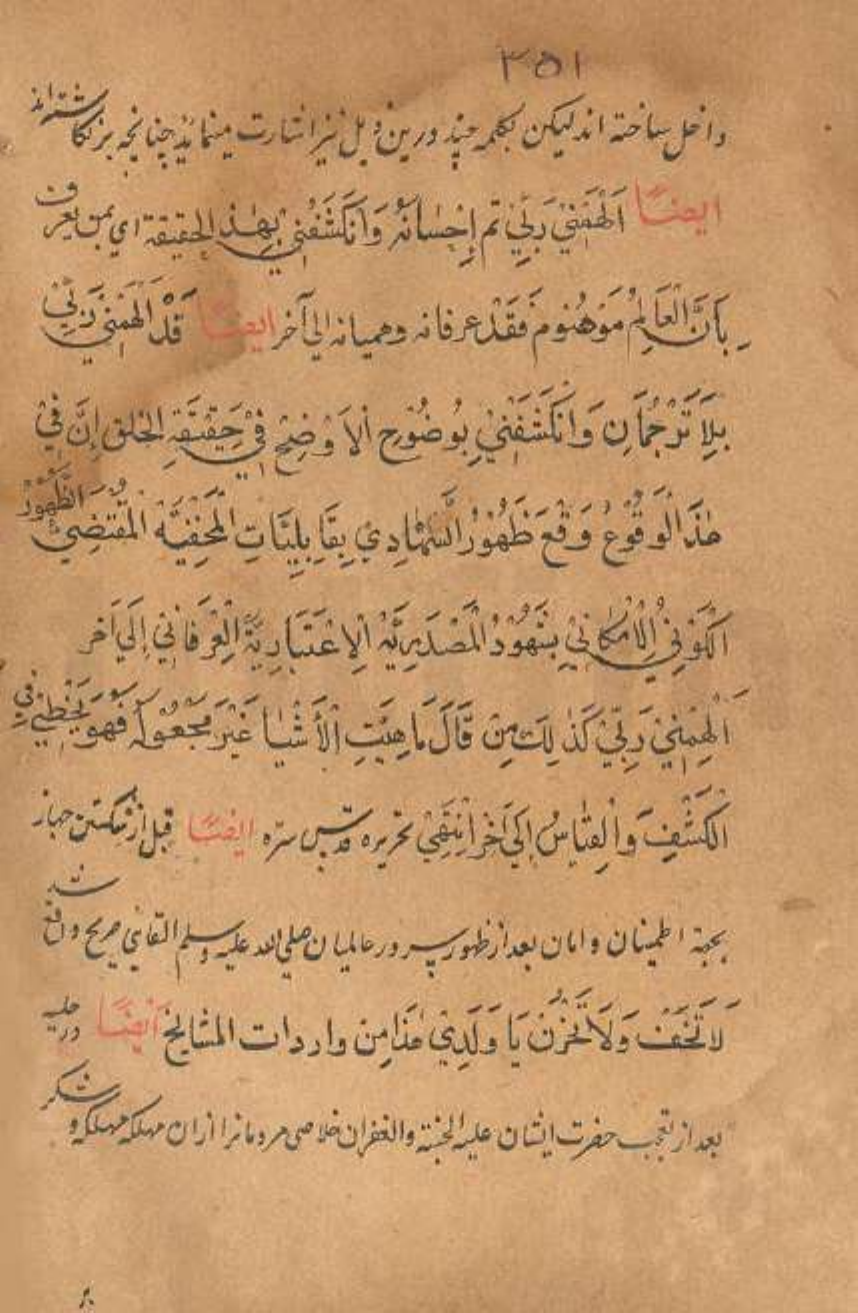 ٣٥١
داخل ساخته اند لیکن بکلمه چند درین ذیل نیز اشارت مینماید چنانچه برنگاشته اند
ایضًا اَلْهَمَنِيْ رَبِّيْ تم إِحْسَانُهُ وَانْكَشَفَنِيْ بِهٰذِ الحقیقة ای بمن یعرف
بِأَنَّ الْعَالِمُ مَوْهُنُومْ فَقَدْ عرفانه وهمیانه الی آخر ایضًا قَدْ اَلْهَمَنِيْ رَبِّيْ
بِلَا تَرْجُمَانٍ وَانْكَشَفَنِيْ بِوُضُوْحِ اَلْاَوْضِحْ فِيْ حَقِيْقَةِ الخلق إِنَّ فِيْ
هٰذَا الْوَقُوْعُ وَقَعَ ظَهُوْرُ السَّمَادِيْ بِقَابِلِيَّاتِ الْمَخْفِيَّه الْمُقْتَضِيُ الظَّهُوْرُ
الْكَوْنِيْ الْاِمْكَانِيْ بِشَهُوْدُ الْمَصْدَرِيَّه الْاِعْتَبَارِيَّةْ الْعِرْفَانِيْ إِلَي آخر
اَلْهَمَنِيْ رَبِّيْ كَذٰلِكَ مِنْ قَالَ مَاهِيَّتِ الْأَشْيَا غَيْرَ مَجْعُولَه فَهُوَ يَخْطِيْ فِي
الْكَشْفِ وَالْقِيَاسُ اِلَي آخر اِنْتَهٰي تحریره قدس سرّه ایضًا قبل از شکستن جهاز
بجهة اطمینان و امان بعد از ظهور سرور عالمیان صلی الله علیه وسلم القای صریح واقع شد
لَا تَخَفْ وَلَا تَحْزُنْ يَا وَلَدِيْ هٰذَا مِن واردات المشایخ أیضًا در جلیه
بعد از تعجب حضرت ایشان علیه الجنة والغفران خلاصی مردمانرا ازان مهلکه مهلکه و شکر